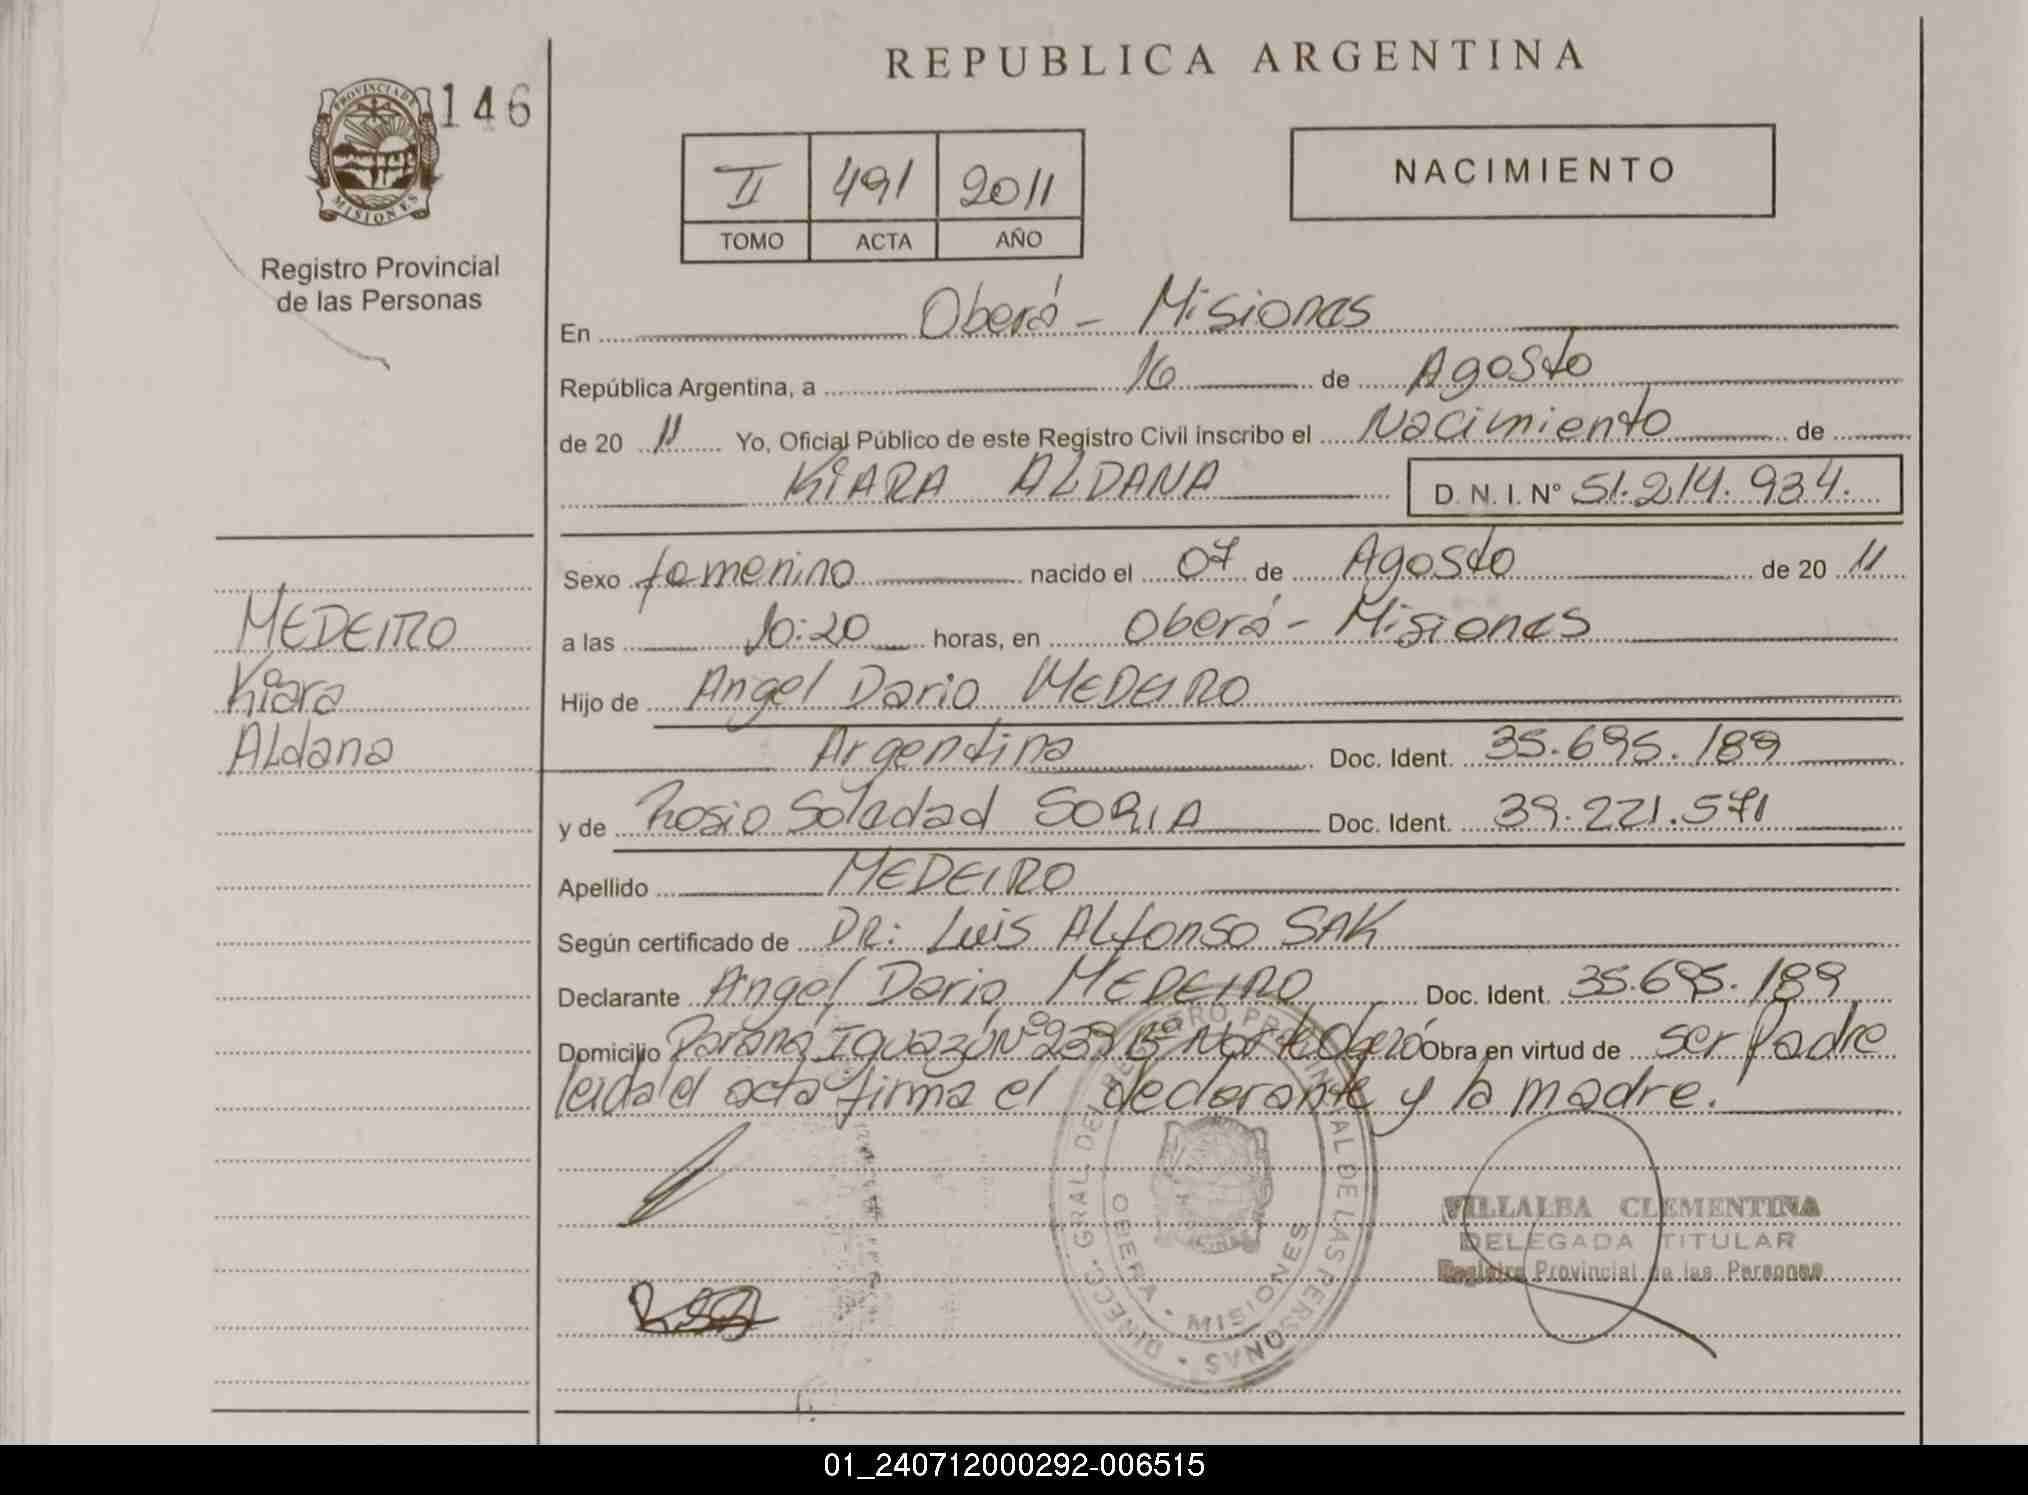 REPUBLICA ARGENTINA
PROVINCIA DE MISIONES
146
Registro Provincial
de las Personas
II 491 2011
TOMO ACTA AÑO
NACIMIENTO
En Oberá - Misiones
República Argentina, a 16 de Agosto
de 20 11 Yo, Oficial Público de este Registro Civil inscribo el Nacimiento de
KIARA ALDANA D. N. I. N° 51.214.934.
Sexo femenino nacido el 07 de Agosto de 20 11
a las 10:20 horas, en Oberá - Misiones
Hijo de Angel Dario MEDEIRO
Argentina Doc. Ident. 35.695.189
y de Rosio Soledad SORIA Doc. Ident. 39.221.571
Apellido MEDEIRO
Según certificado de DR: Luis Alfonso SAK
Declarante Angel Dario MEDEIRO Doc. Ident. 35.695.189
Domicilio Paraná Iguazú N° 239 B° Norte Oberá Obra en virtud de ser Padre
leida el acta firma el declarante y la madre.
MEDEIRO
Kiara
Aldana
DIRECC. GRAL. DEL REGISTRO PROVINCIAL DE LAS PERSONAS
OBERA - MISIONES
VILLALBA CLEMENTINA
DELEGADA TITULAR
Registro Provincial de las Personas
01_240712000292-006515